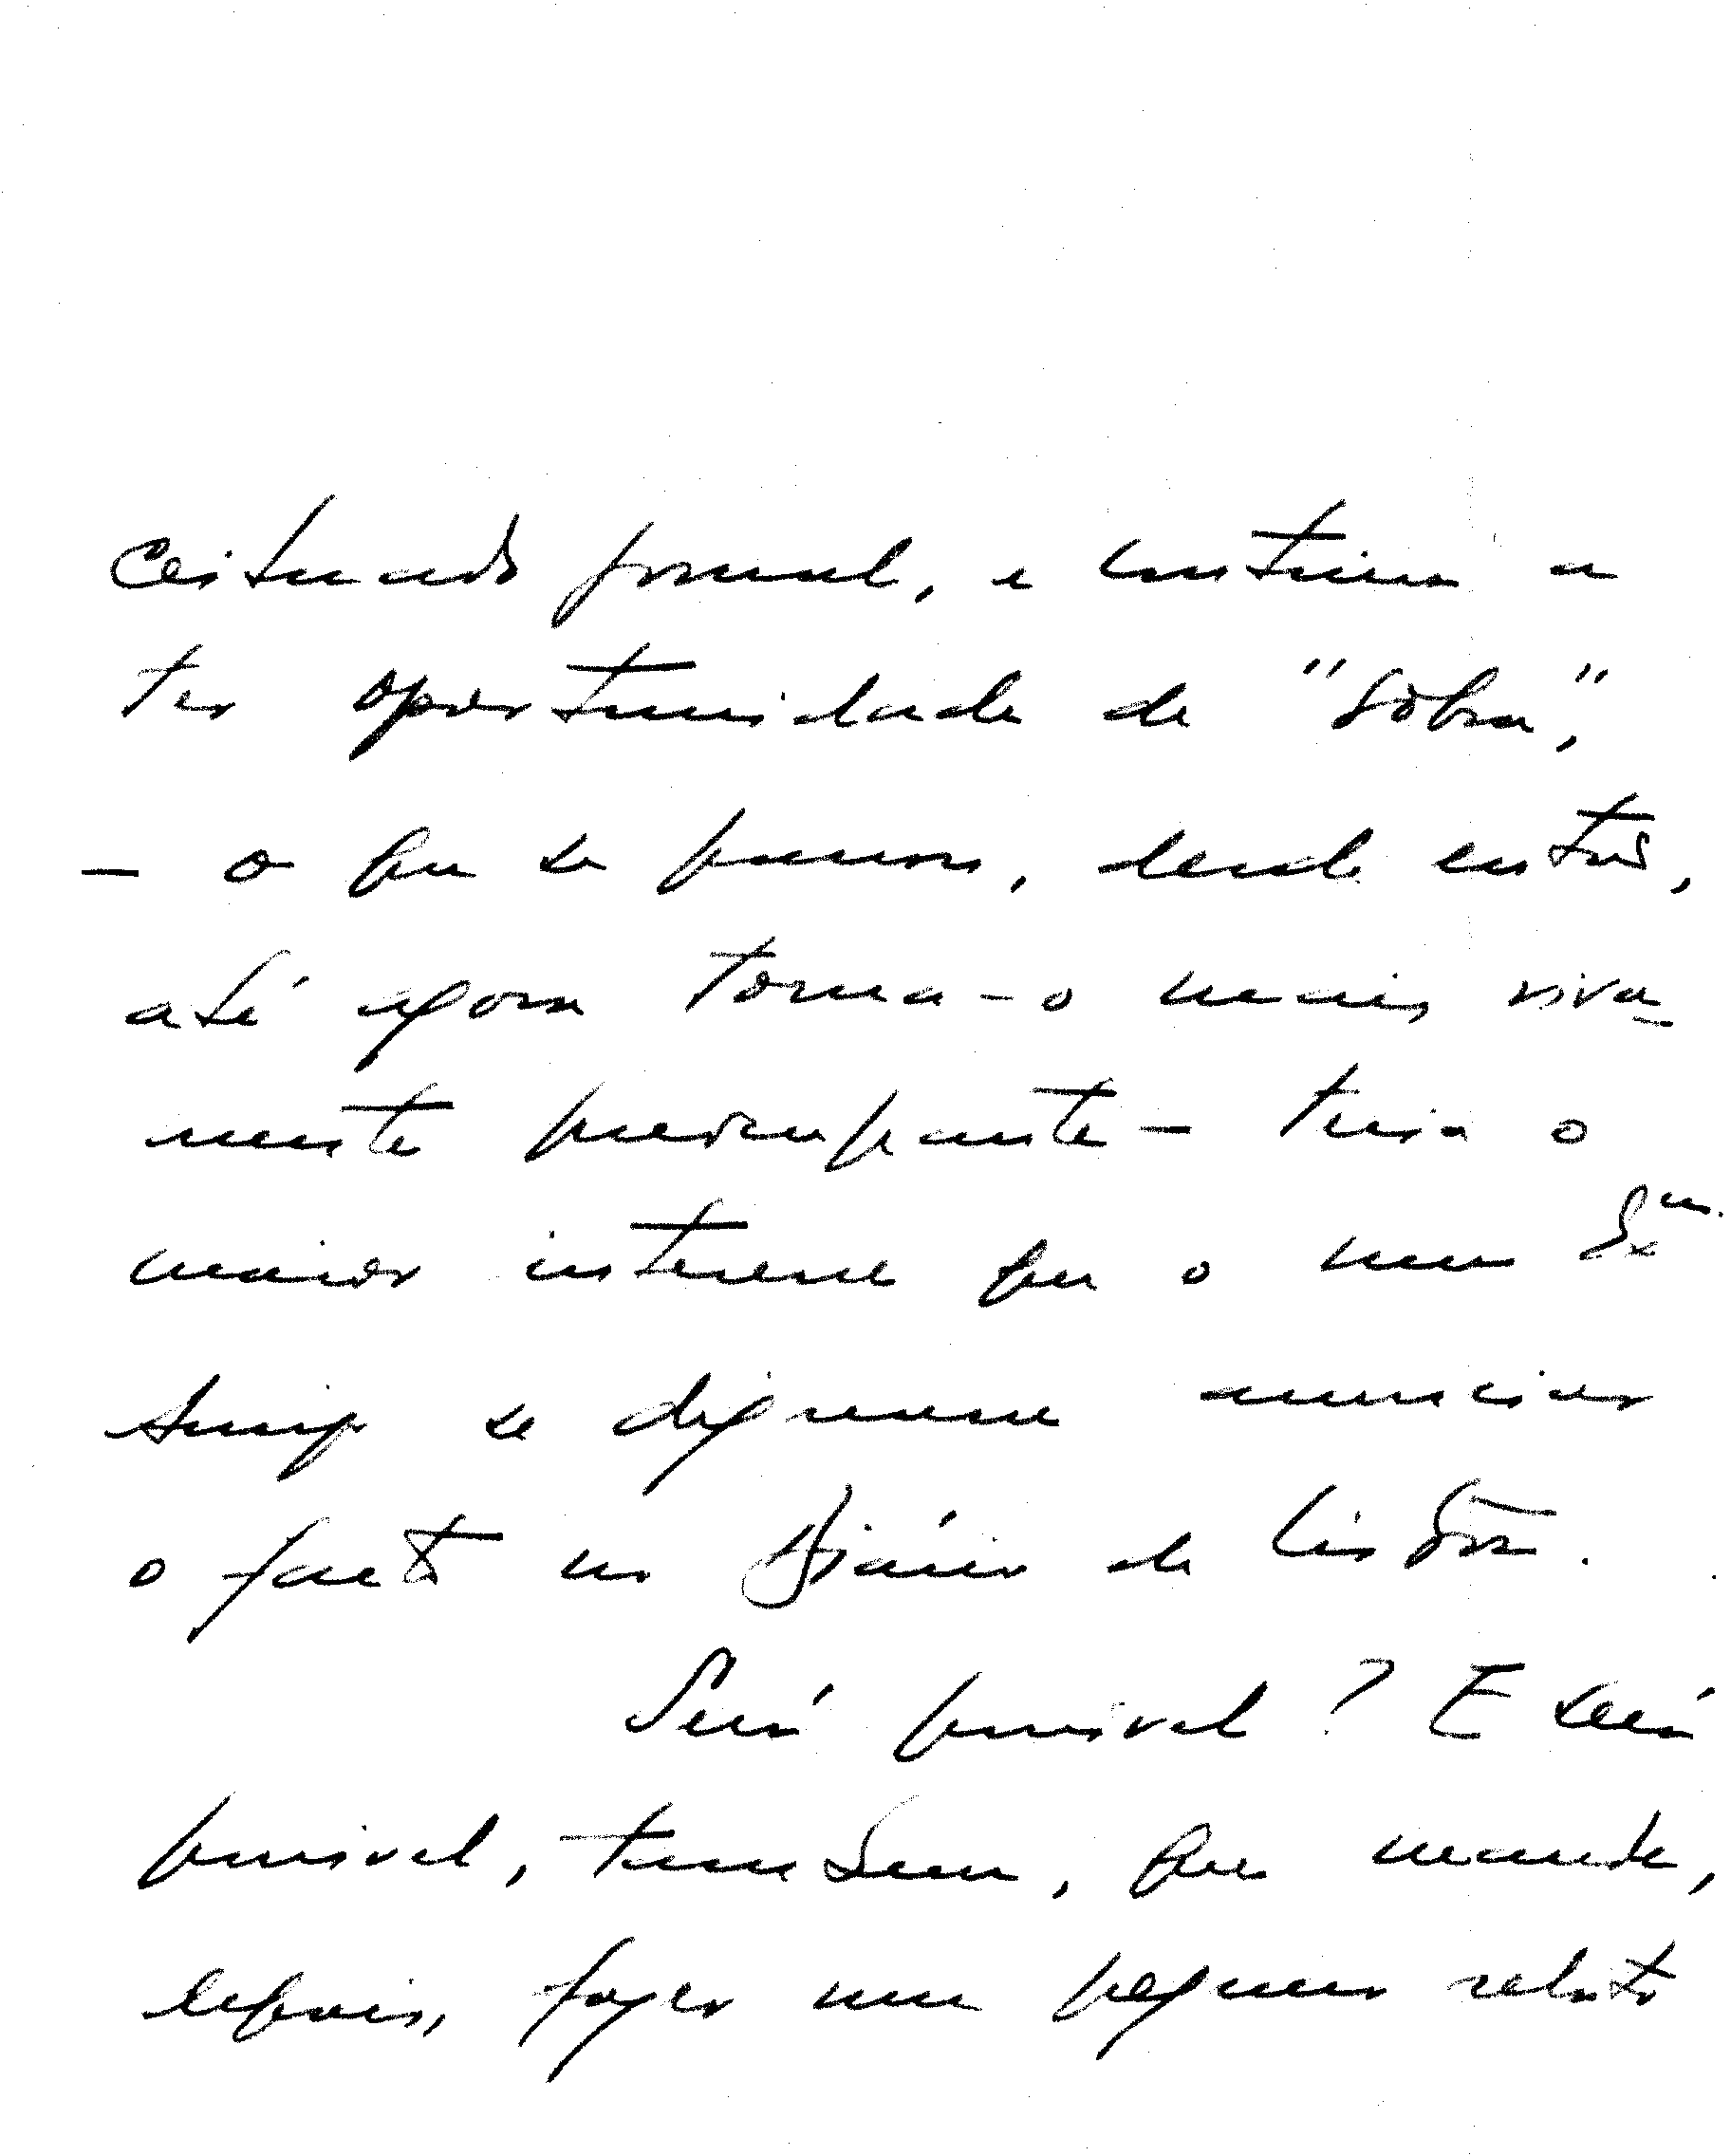 ceituado formal, e continua a
ter oportunidade de "sobra",
— o que se passou, desde então,
até agora torna-o mais viva-
mente preocupante — teria o
maior interesse que o meu Exm.
Amigo se dignasse anunciar
o facto no Diário de Lisboa.
Será possível? E será
possível, também, que mande,
depois, fazer um pequeno relato